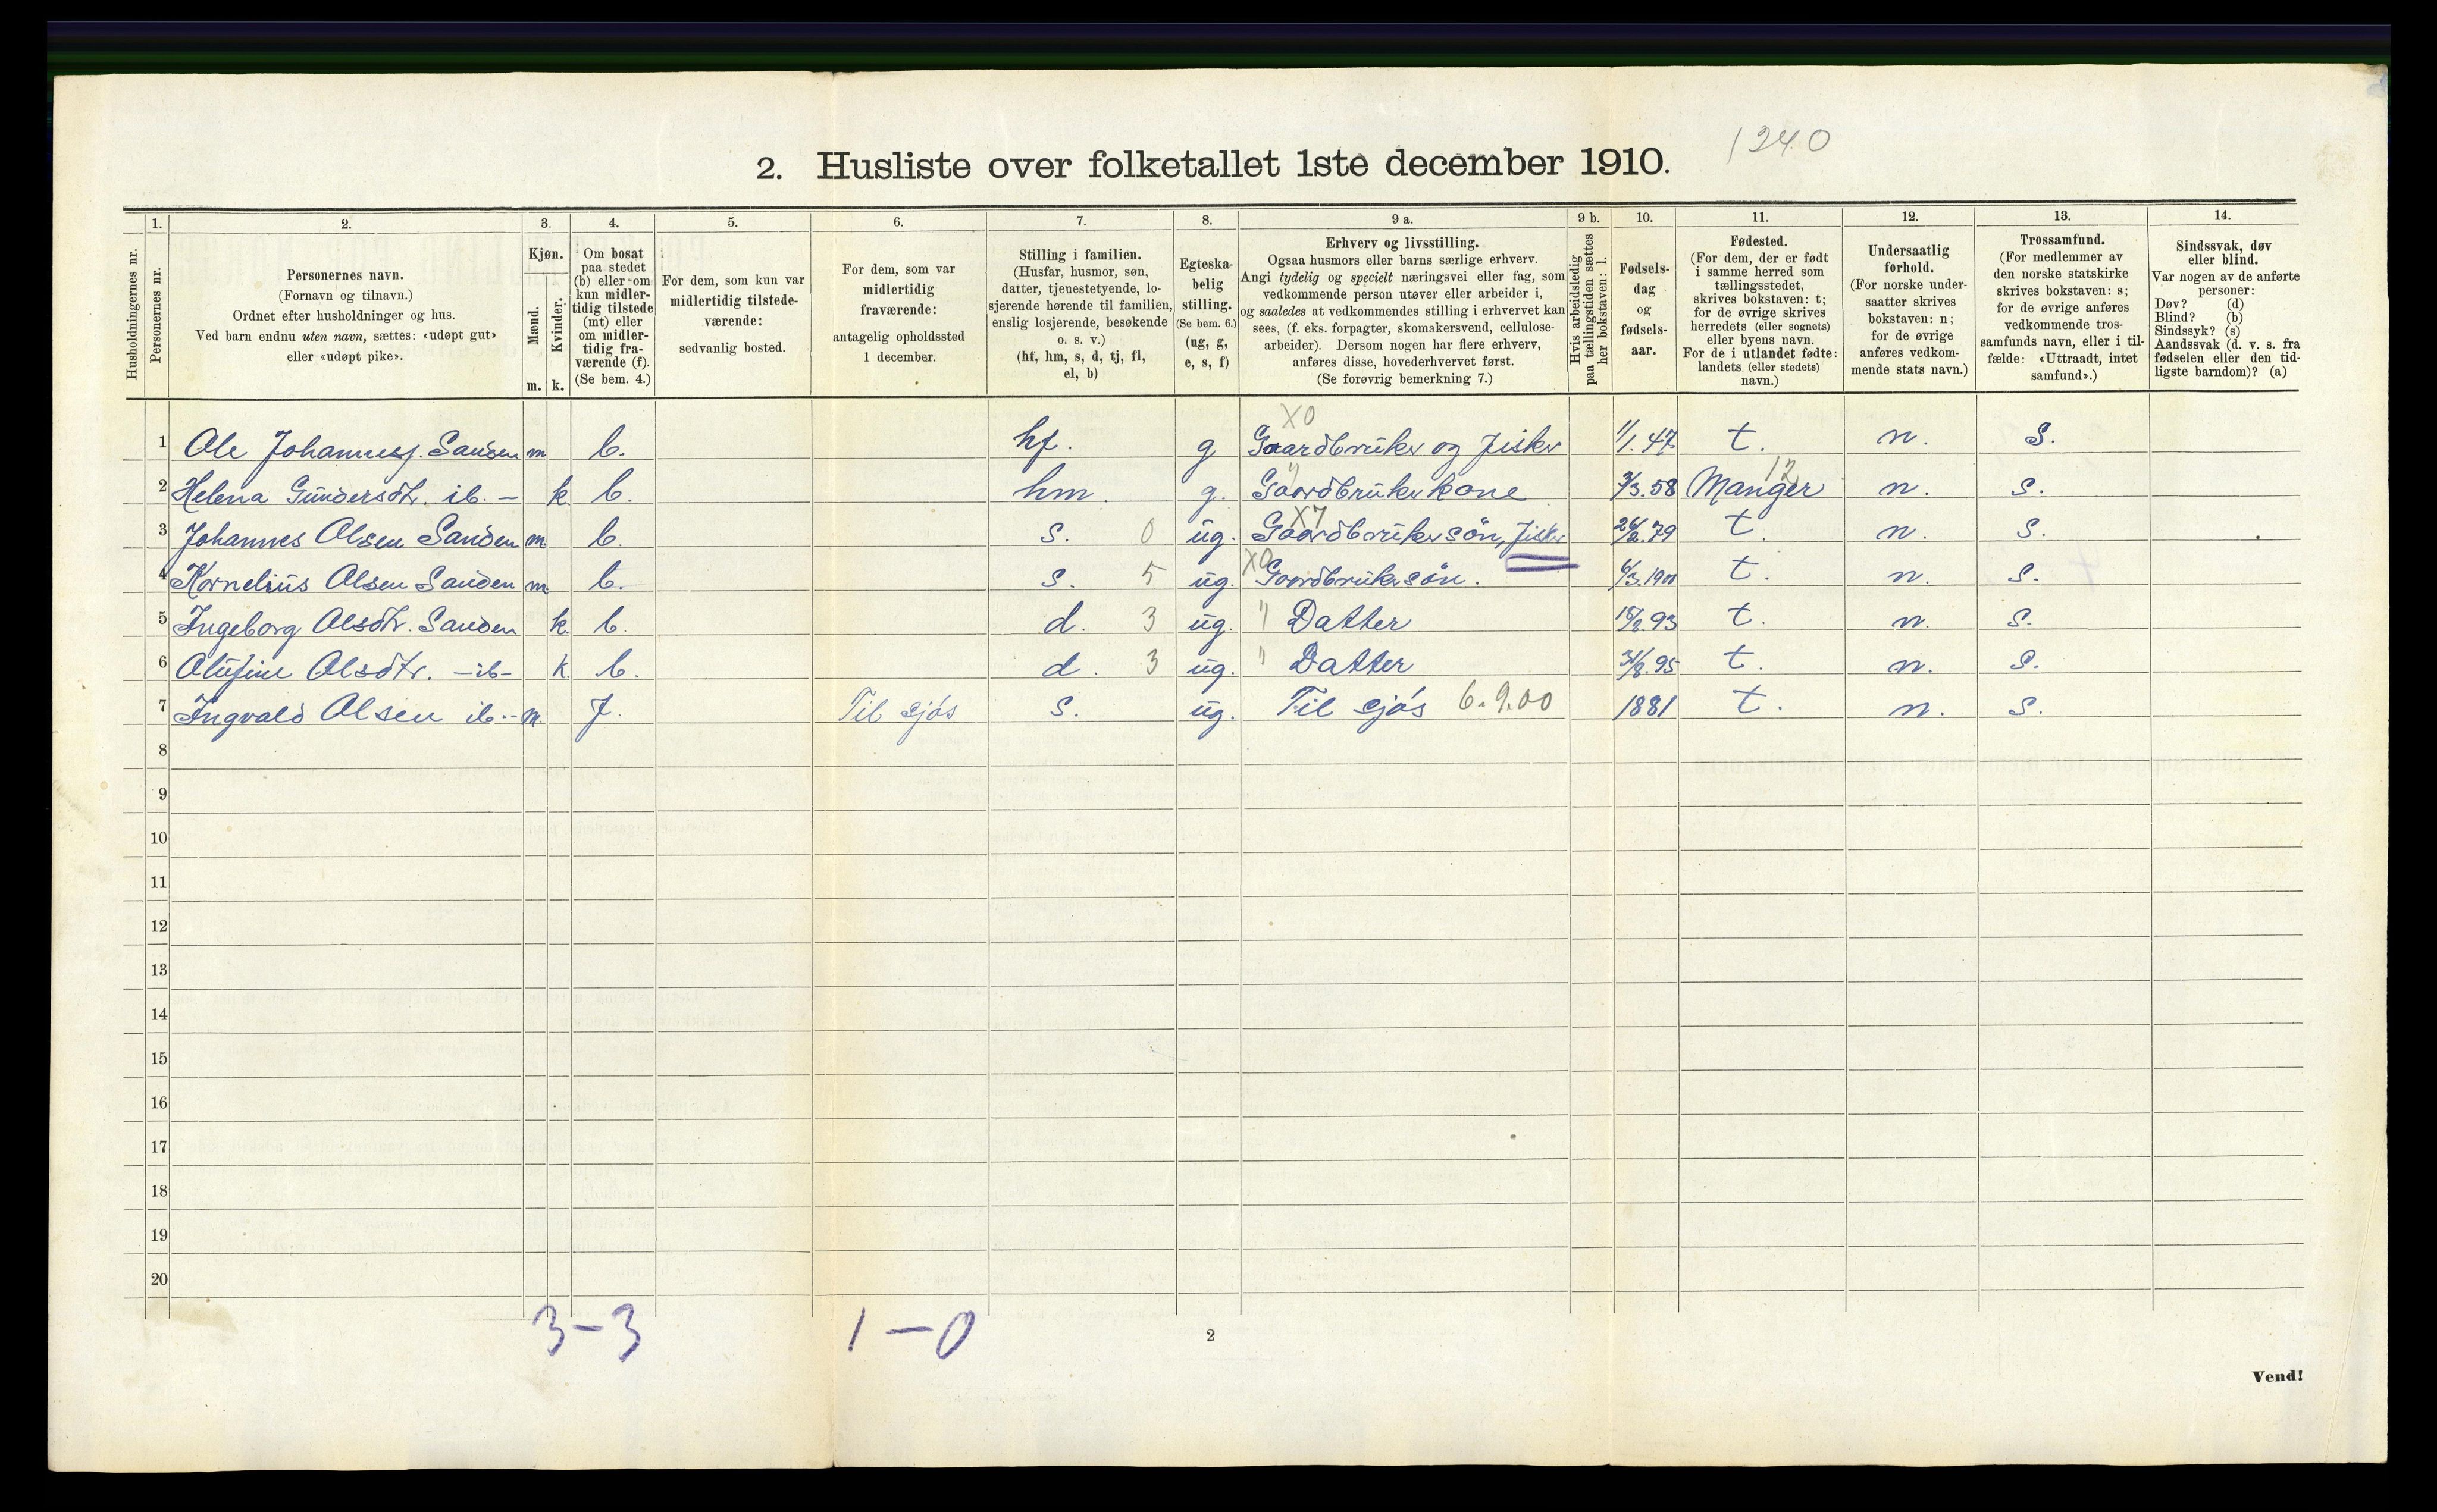 1240
2. Husliste over folketallet 1ste december 1910.
Husholdningernes nr.
1. Personernes nr.
2. Personernes navn.
(Fornavn og tilnavn.)
Ordnet efter husholdninger og hus.
Ved barn endnu uten navn, sættes: «udøpt gut»
eller «udøpt pike».
3. Kjøn.
Mænd. m.
Kvinder. k.
4. Om bosat
paa stedet
(b) eller om
kun midler-
tidig tilstede
(mt) eller
om midler-
tidig fra-
værende (f).
(Se bem. 4.)
5. For dem, som kun var
midlertidig tilstede-
værende:
sedvanlig bosted.
6. For dem, som var
midlertidig
fraværende:
antagelig opholdssted
1 december.
7. Stilling i familien.
(Husfar, husmor, søn,
datter, tjenestetyende, lo-
sjerende hørende til familien,
enslig losjerende, besøkende
o. s. v.)
(hf, hm, s, d, tj, fl,
el, b)
8. Egteska-
belig
stilling.
(Se bem. 6.)
(ug, g,
e, s, f)
9 a. Erhverv og livsstilling.
Ogsaa husmors eller barns særlige erhverv.
Angi tydelig og specielt næringsvei eller fag, som
vedkommende person utøver eller arbeider i,
og saaledes at vedkommendes stilling i erhvervet kan
sees, (f. eks. forpagter, skomakersvend, cellulose-
arbeider). Dersom nogen har flere erhverv,
anføres disse, hovederhvervet først.
(Se forøvrig bemerkning 7.)
9 b. Hvis arbeidsledig
paa tællingstiden sættes
her bokstaven: l.
10. Fødsels-
dag
og
fødsels-
aar.
11. Fødested.
(For dem, der er født
i samme herred som
tællingsstedet,
skrives bokstaven: t;
for de øvrige skrives
herredets (eller sognets)
eller byens navn.
For de i utlandet fødte:
landets (eller stedets)
navn.)
12. Undersaatlig
forhold.
(For norske under-
saatter skrives
bokstaven: n;
for de øvrige
anføres vedkom-
mende stats navn.)
13. Trossamfund.
(For medlemmer av
den norske statskirke
skrives bokstaven: s;
for de øvrige anføres
vedkommende tros-
samfunds navn, eller i til-
fælde: «Uttraadt, intet
samfund».)
14. Sindssvak, døv
eller blind.
Var nogen av de anførte
personer:
Døv? (d)
Blind? (b)
Sindssyk? (s)
Aandssvak (d. v. s. fra
fødselen eller den tid-
ligste barndom)? (a)
X0
1 Ole Johannesj. Sanden m b. hf. g Gaardbruker og fisker 1/1.47 t. n. S.
" 12
2 Helena Gundersdt. ib. - k b. hm. g. Gaardbruker kone 3/3.58 Manger n. S.
X7
3 Johannes Olsen Sanden m b. s. 0 ug. Gaardbrukersön, fisker 26/2.79 t. n. S.
X0
4 Kornelius Olsen Sanden m b. s. 5 ug. Gaardbrukersön. 6/3.1900 t. n. S.
5 Ingeborg Olsdtr. Sanden k. b. d. 3 ug. " Datter 18/8.93 t. n. S.
6 Olufine Olsdtr. -ib- k. b. d. 3 ug. " Datter 31/8.95 t. n. S.
7 Ingvald Olsen ib.- m. f. Til sjós s. ug. Til sjós 6.9.00 1881 t. n. S.
8
9
10
11
12
13
14
15
16
17
18
19
20
3-3 1-0
2
Vend!